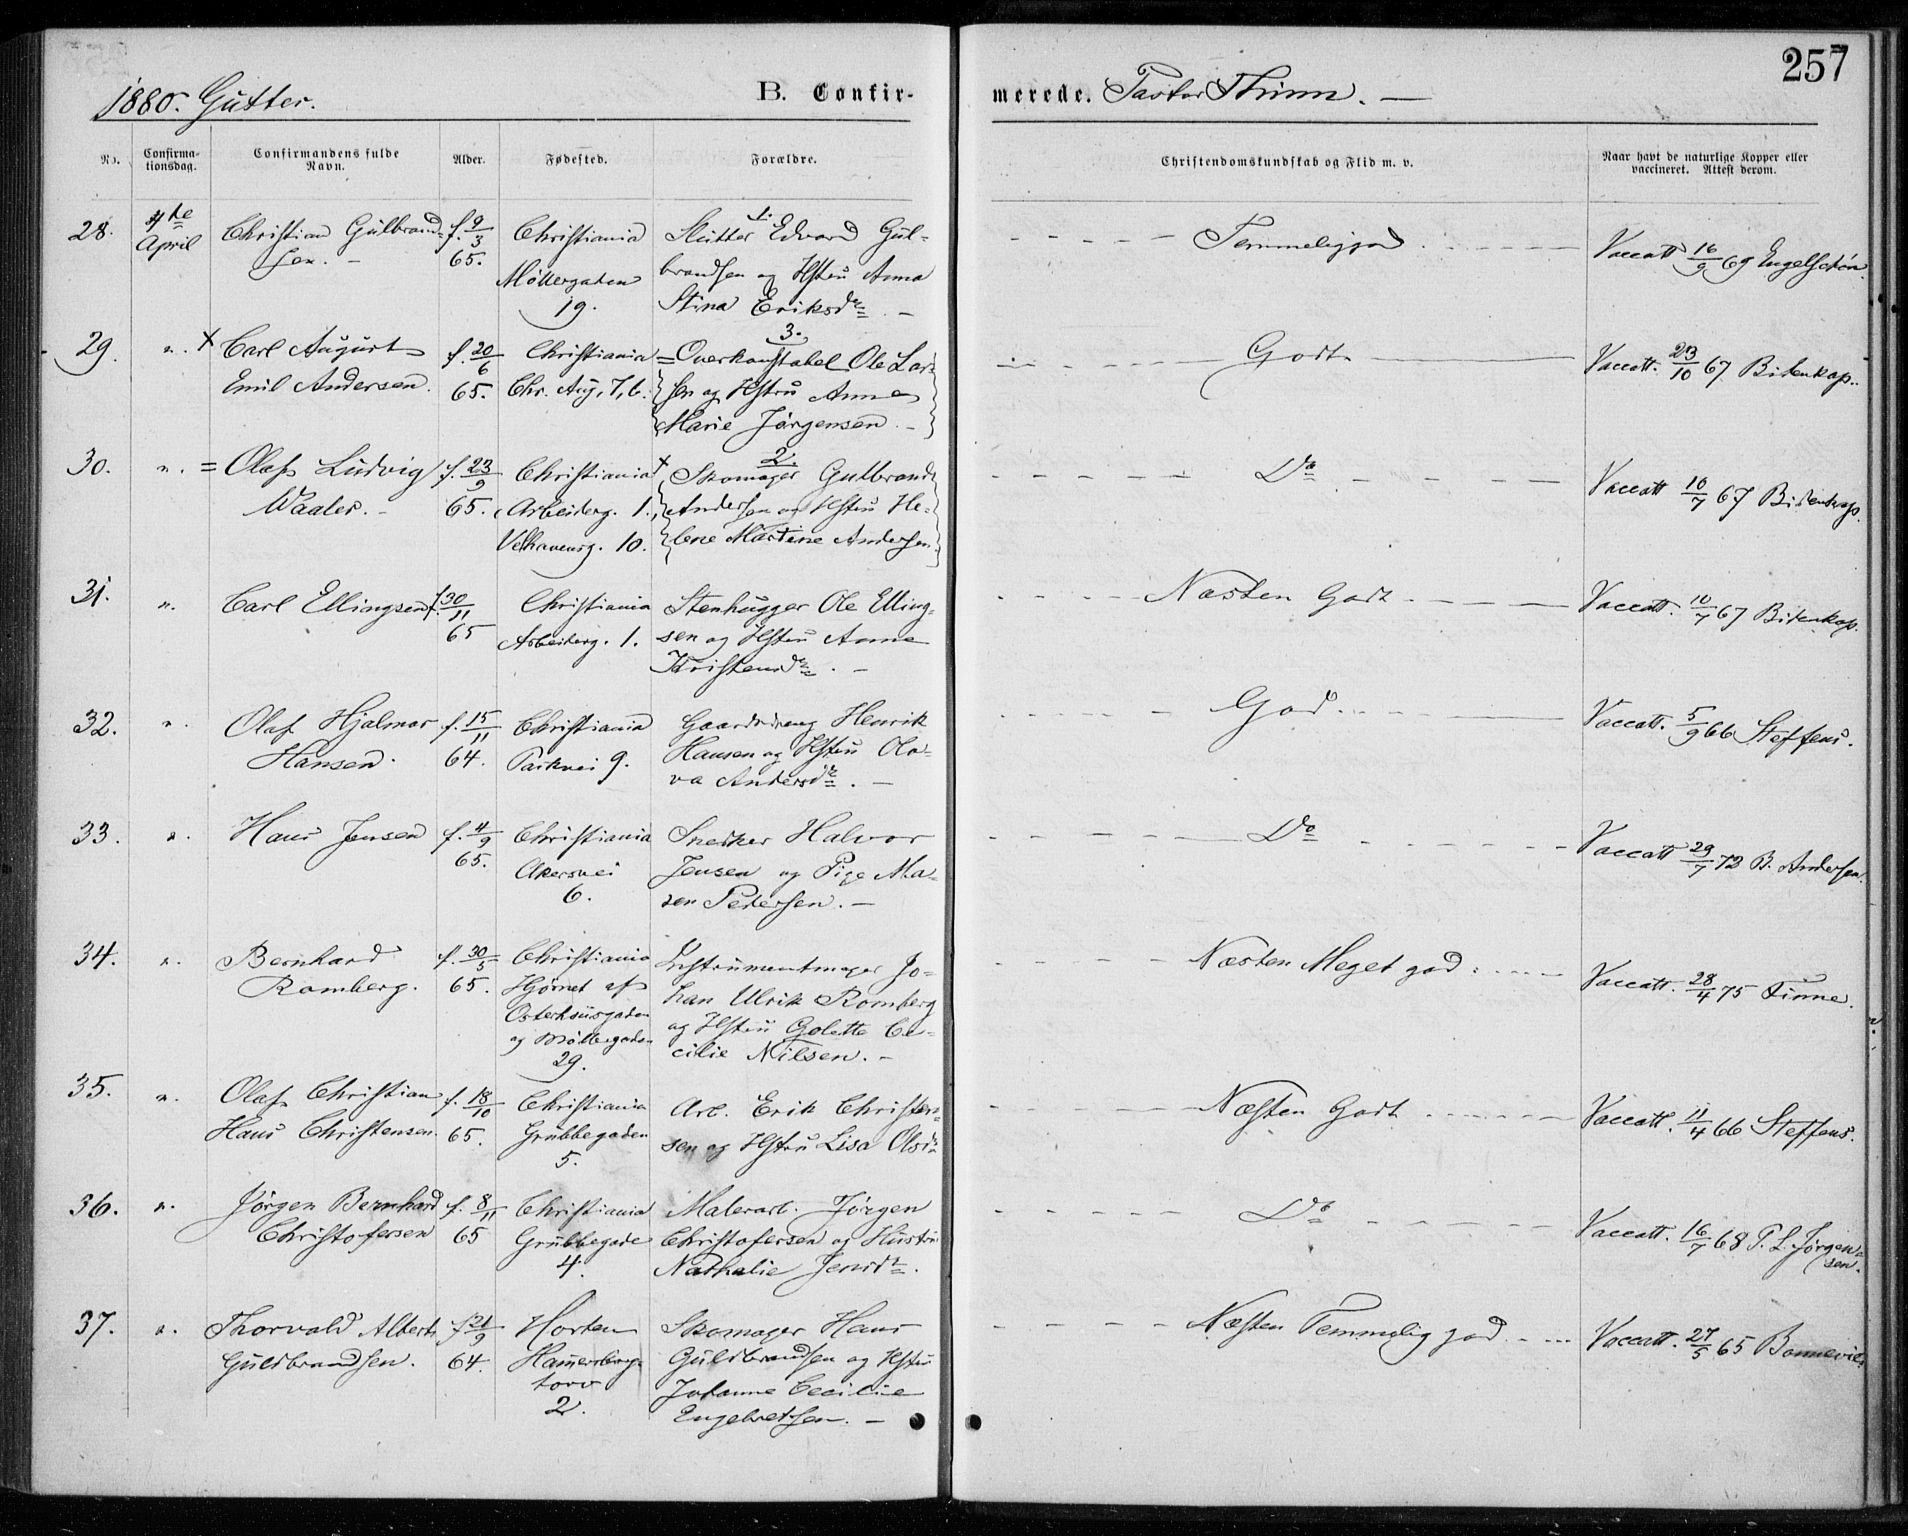 257
1880. Gutter.
B. Confir-
merede. Pastor Thinn. —
No.
Confirma-
tionsdag.
Confirmandens fulde
Navn.
Alder.
Fødested.
Forældre.
Christendomskundskab og Flid m. v.
Naar havt de naturlige Kopper eller
vaccineret. Attest derom.
28. 4de April
Christian Gulbrand-
sen. –
f. 9/3 65.
Christiania
Møllergaden
19.
1.
Slutter Edvard Gul-
brandsen og Hstru Anna
Stina Eriksdr. –
Temmeliggod
Vaccatt 16/9 69 Engelschøn.
29. ". × Carl August
Emil Andersen.
f. 20/6 65.
Christiania
Chr. Aug, 7, b.
3.
= Overkonstabel Ole Lar-
sen og Hstru Anne
Marie Jørgensen. –
Godt
Vaccatt. 23/10 67 Bidenkap.
30. ". = Olaf Ludvig
Waaler. –
f. 23/9 65.
Christiania
Arbeiderg. 1.,
Velhavensg. 10.
2.
× Skomager Gulbrand
Andersen og Hstru He-
lene Martine Andersen.
Do
Vaccatt 10/7 67 Bidenkap.
31. ". Carl Ellingsen
f. 30/11 65
Christiania
Arbeiderg. 1.
Stenhugger Ole Elling-
sen og Hstru Anne
Kristensdr. –
Næsten Godt
Vaccatt. 10/7 67 Bidenkap.
32. ". Olaf Hjalmar
Hansen.
f. 15/11 64.
Christiania
Parkvei 9.
Gaardsdreng Henrik
Hansen og Hstru Ola-
va Andersdr. –
God
Vaccatt. 5/9 66 Steffens.
33. ". Hans Jensen
f. 4/9 65.
Christiania
Akersvei
6.
Snedker Halvor
Jensen og Pige Ma-
ren Pedersen. –
Do
Vaccatt 29/7 72 B. Andersen.
34. ". Bernhard
Romberg.
f. 30/5 65.
Christiania
Hjørnet af
Osterhausgaden
og Møllergaden
29.
Instrumentmager Jo-
han Ulrik Romberg
og Hstru Golette Ce-
cilie Nilsen. –
Næsten Meget god.
Vaccatt. 28/4 75 Finne.
35. ". Olaf Christian
Hans Christensen.
f. 18/10 65.
Christiania
Grubbegaden
5.
Arb. Erik Christen-
sen og Hstru Lisa Olsdr
Næsten Godt
Vaccatt. 11/4 66 Steffens.
36. ". Jørgen Bernhard
Christofersen
f. 8/11 65
Christiania
Grubbegade
4.
Malerarb. Jørgen
Christofersen og Hustru
Nathalie Jensdr.
Do
Vaccatt. 16/7 68 P. L. Jørgen-
sen.
37. ". Thorvald Albert
Guldbrandsen.
f. 21/9 64.
Horten
Hammersborg-
torv
2.
Skomager Hans
Guldbrandsen og Hstru
Johanne Cecilie
Engebretsen. –
Næsten Temmelig god
Vaccatt. 27/5 65 Bonnevie.